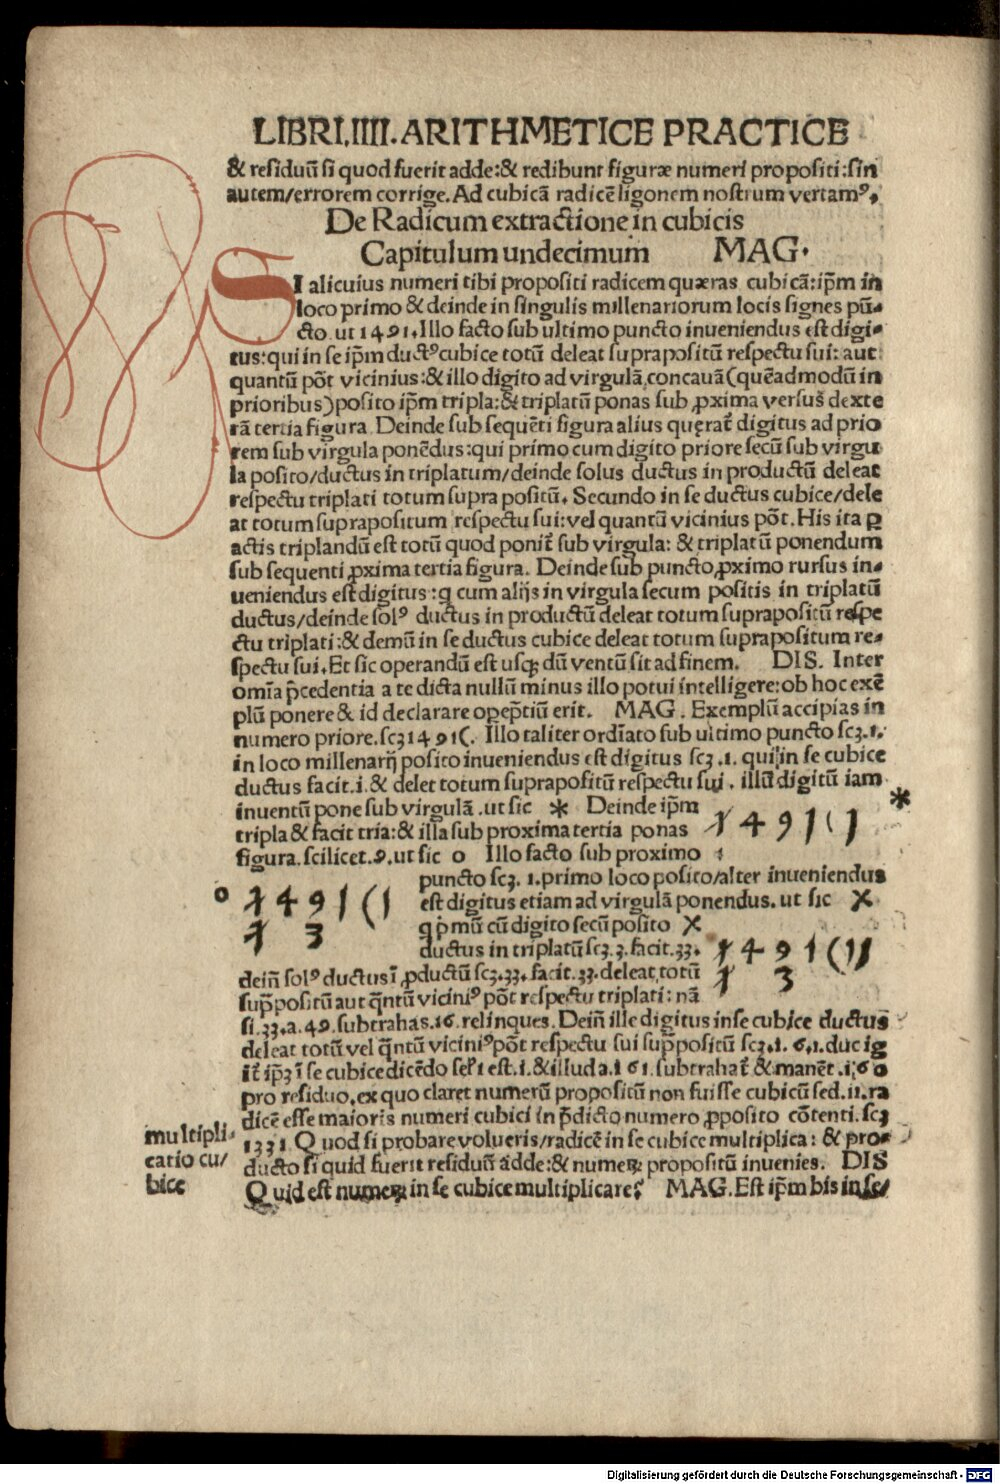 LIBRI.IIII. ARITHMETICE PRACTICE
& residuū si quod fuerit adde:& redibunt figuræ numeri propositi:sin
autem/errorem corrige. Ad cubicā radicē ligonem nostrum vertamꝰ.
De Radicum extractione in cubicis
Capitulum undecimum MAG.
SI alicuius numeri tibi propositi radicem quæras cubicā:ip̄m in
loco primo & deinde in singulis millenariorum locis signes pū-
cto ut 1491. Illo facto sub ultimo puncto inueniendus est digi-
tus:qui in se ip̄m ductꝰ cubice totū deleat suprapositū respectu sui: aut
quantū pōt vicinius:& illo digito ad virgulā concauā(quēadmodū in
prioribus)posito ip̄m tripla:& triplatū ponas sub ꝓxima versus dexte
rā tertia figura. Deinde sub sequēti figura alius quęrat᷑ digitus ad prio
rem sub virgula ponēdus:qui primo cum digito priore secū sub virgu
la posito/ductus in triplatum/deinde solus ductus in productū deleat
respectu triplati totum supra positū. Secundo in se ductus cubice/dele
at totum suprapositum respectu sui:vel quantū vicinius pōt. His ita ꝑ
actis triplandū est totū quod ponit᷑ sub virgula: & triplatū ponendum
sub sequenti ꝓxima tertia figura. Deinde sub puncto ꝓximo rursus in-
ueniendus est digitus:q cum alijs in virgula secum positis in triplatū
ductus/deinde solꝰ ductus in productū deleat totum suprapositū respe
ctu triplati:& demū in se ductus cubice deleat totum suprapositum re-
spectu sui. Et sic operandū est usqꝫ dū ventū sit ad finem. DIS. Inter
omīa p̄cedentia a te dicta nullū minus illo potui intelligere:ob hoc exē
plū ponere & id declarare opep̄tiū erit. MAG. Exemplū accipias in
numero priore.scꝫ 1491(. Illo taliter ordīato sub ultimo puncto scꝫ.1.
in loco millenarij posito inueniendus est digitus scꝫ .1. qui in se cubice
ductus facit.i.& delet totum suprapositū respectu sui. illū digitū iam
inuentū pone sub virgulā .ut sic * Deinde ip̄m *
tripla & facit tria:& illa sub proxima tertia ponas 1 4 9 1 ( 1
figura.scilicet.9.ut sic o Illo facto sub proximo 1
puncto scꝫ. 1.primo loco posito/alter inueniendus
o 1 4 9 1 ( 1 est digitus etiam ad virgulā ponendus. ut sic X
1 3 q p̄mū cū digito secū posito X
ductus in triplatū scꝫ.3.facit.33. 1 4 9 1 (11
dein̄ solꝰ ductus ī ꝓductū scꝫ.33. facit.33.deleat totū 1 3
sup̄positū aut q̄ntū viciniꝰ pōt respectu triplati: nā
si.33.a.49.subtrahas.16.relinques. Dein̄ ille digitus in se cubice ductus
deleat totū vel q̄ntū viciniꝰ pōt respectu sui sup̄positū scꝫ.1. 6.1.duc ig
it᷑ ip̄ꝫ ī se cubice dicēdo sel̓ 1 est.1.& illud a.161.subtrahat᷑ & manēt.160
pro residuo.ex quo claret numerū propositū non fuisse cubicū sed.11.ra
dicē esse maioris numeri cubici in p̄dicto numero ꝓposito cōtenti.scꝫ
multipli- 1331. Quod si probare volueris/radicē in se cubice multiplica: & pro-
catio cu/ ducto si quid fuerit residuū adde:& numeꝝ propositū inuenies. DIS
bice Quid est numeꝝ in se cubice multiplicare? MAG. Est ip̄m bis in se/
Digitalisierung gefördert durch die Deutsche Forschungsgemeinschaft - DFG